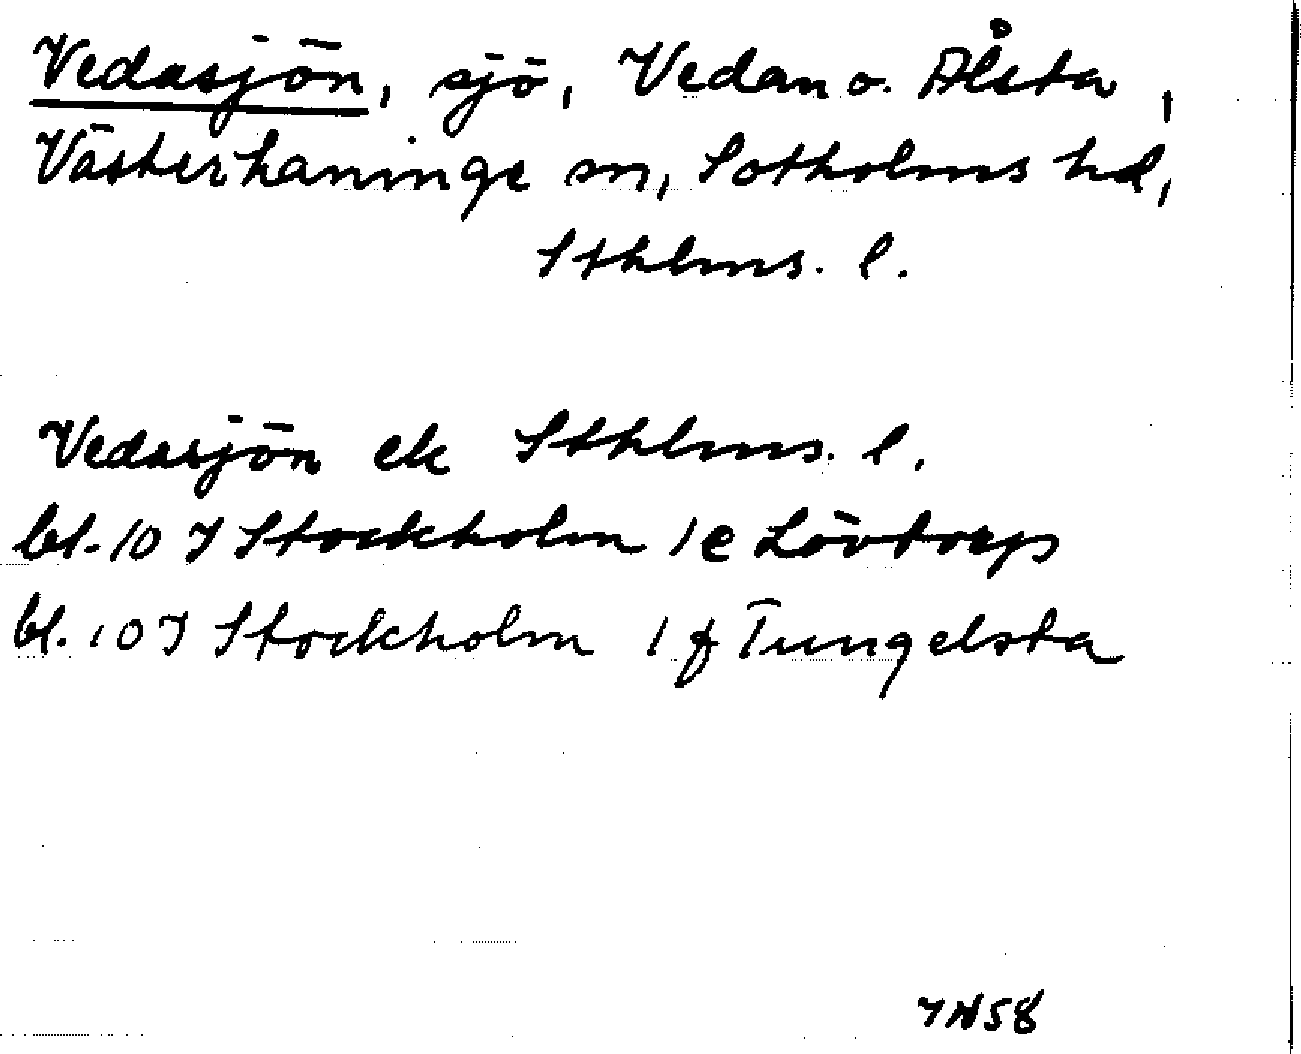 Vedasjön, sjö, Vedan o. Ålsta,
Västerhaninge sn, Sotholms hd,
Sthlms. l.
Vedasjön ek Sthlms. l.
bl. 10 I Stockholm 1 e Lövtorp
bl. 10 I Stockholm 1 f Tungelsta
IN58